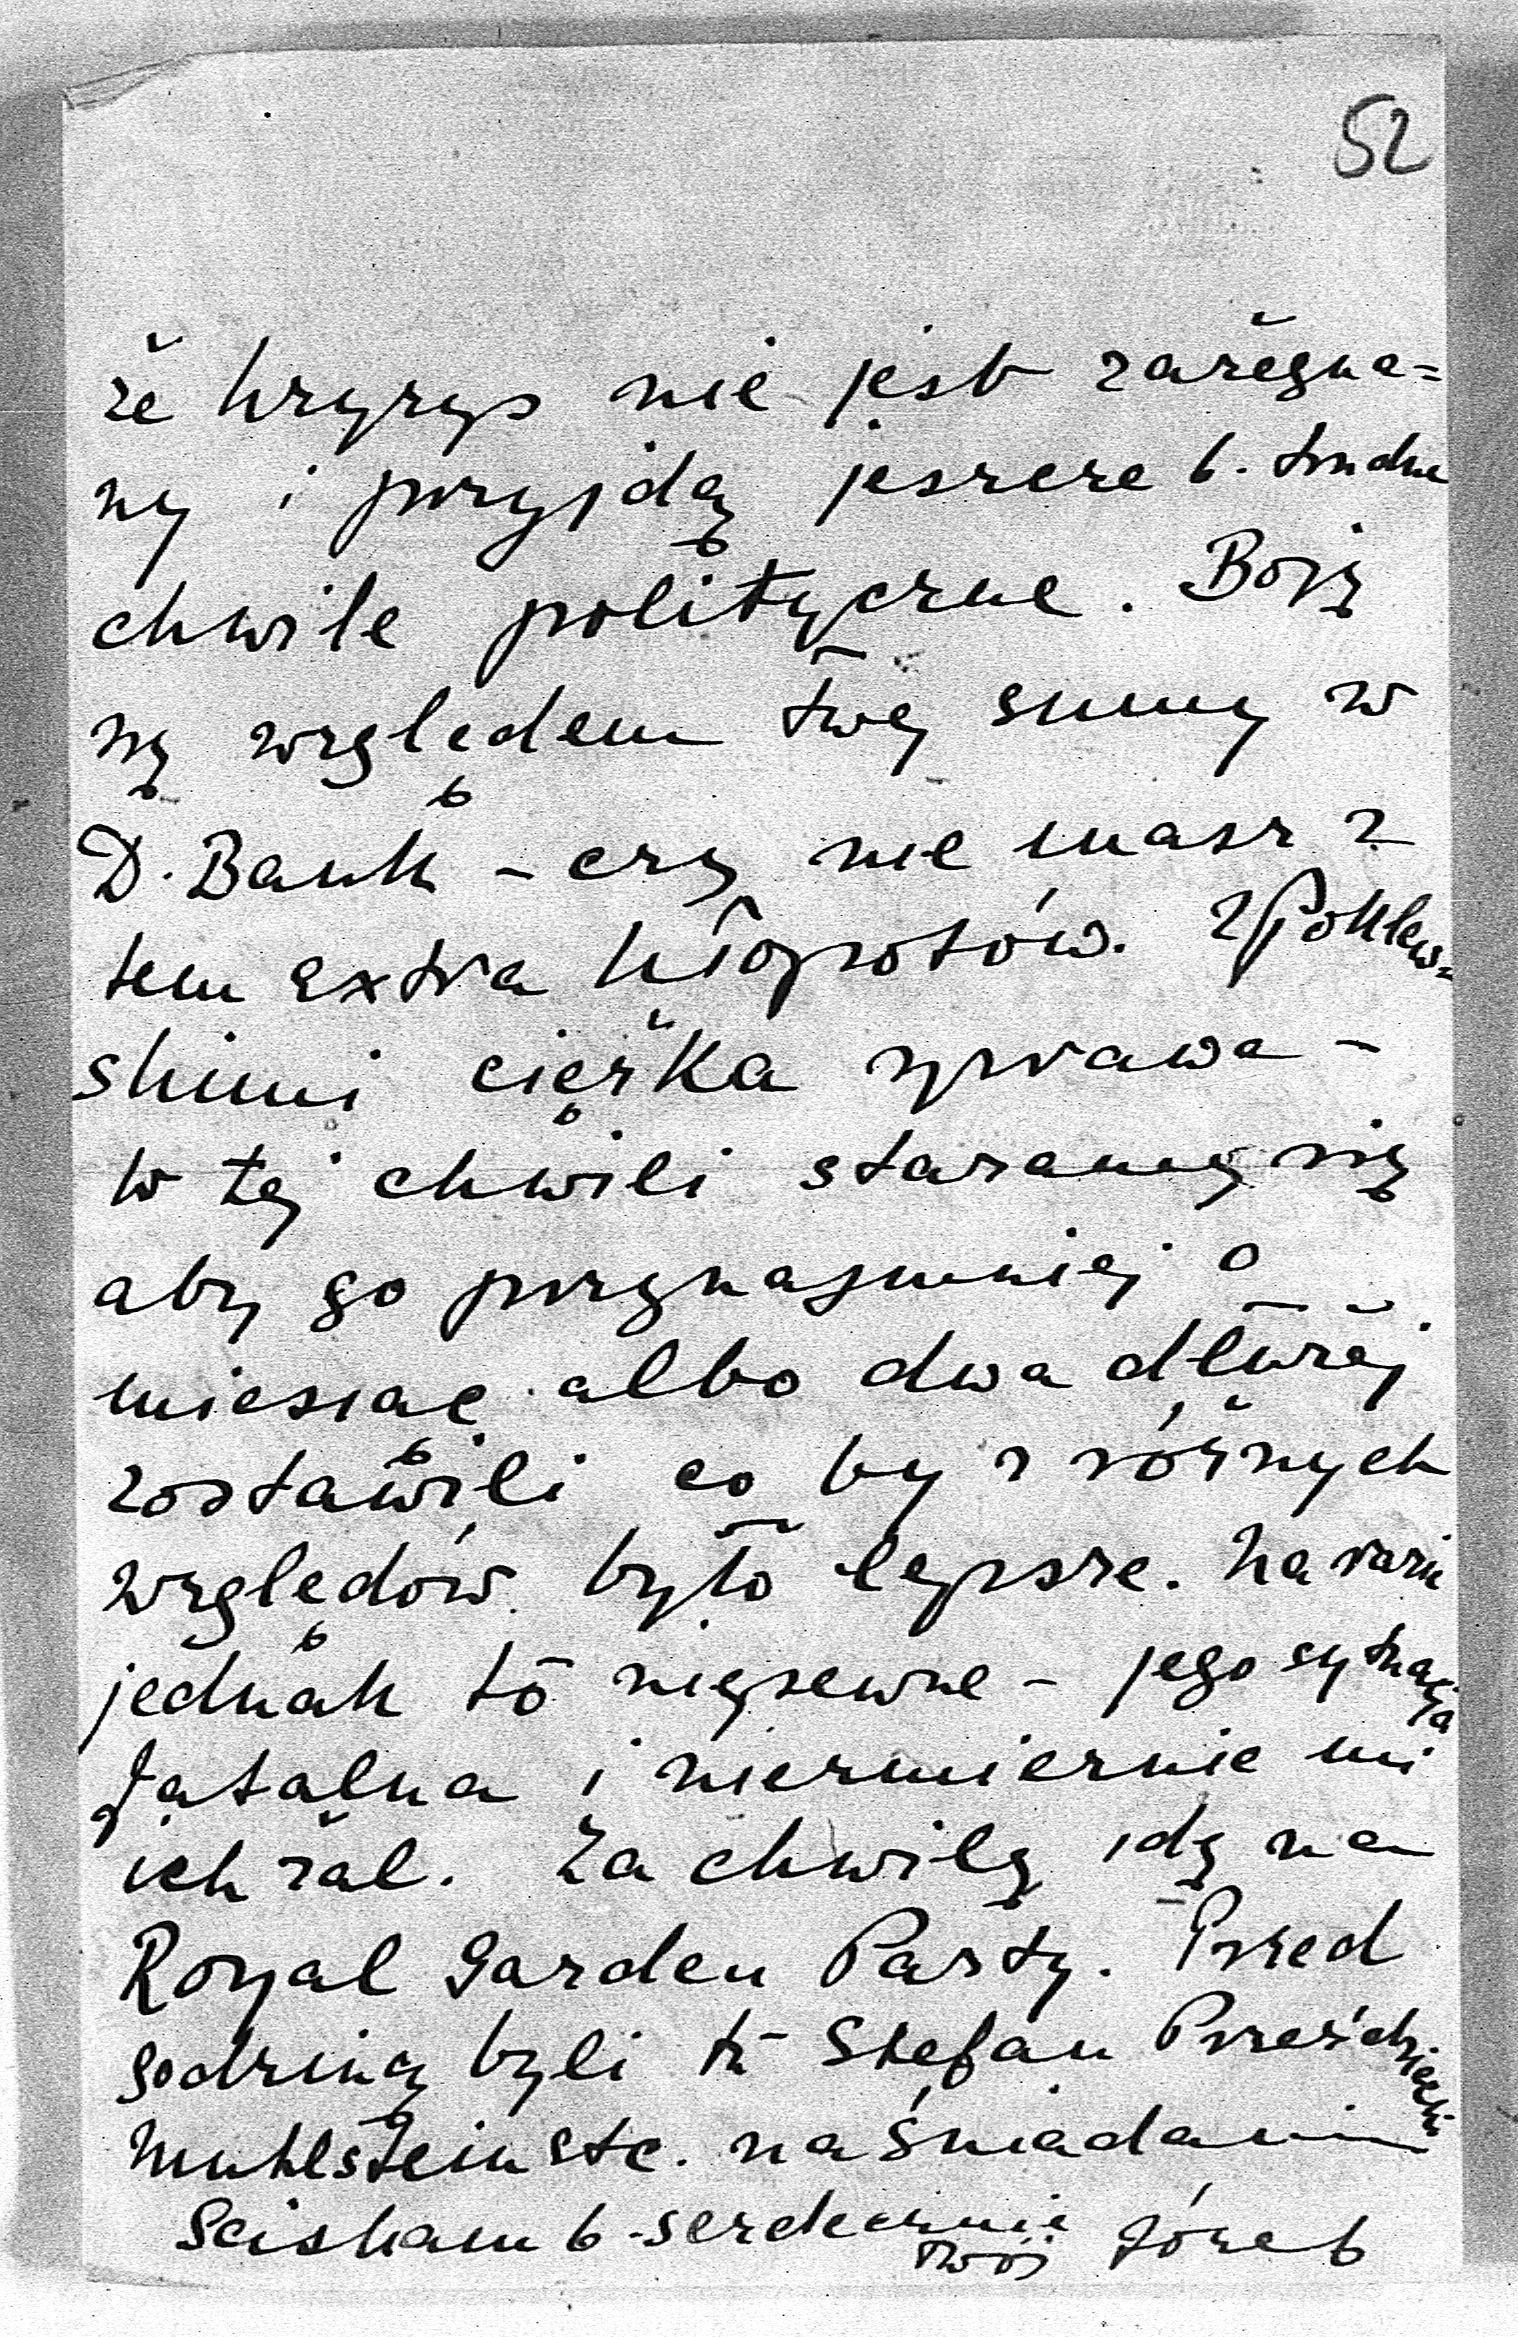 52
że kryzys nie jest zażegna=
ny i przyjdą jeszcze b. trudne
chwile polityczne. Boję
się względem twej sumy w
D. Bank - czy nie masz z
tem extra kłopotów. Z Poklew=
skimi ciężka sprawa -
w tej chwili staramy się
aby go przynajmniej o
miesiąc albo dwa dłużej
zostawili co by z różnych
względów było lepsze. Na razie
jednak to niepewne - jego sytuacja
fatalna i niezmiernie mi
ich żal. Za chwilę idę na
Royal Garden Party. Przed
godziną byli tu Stefan Przeździecki
Muhlstein etc. na śniadaniu
Sciskam b. serdecznie
twój Józef